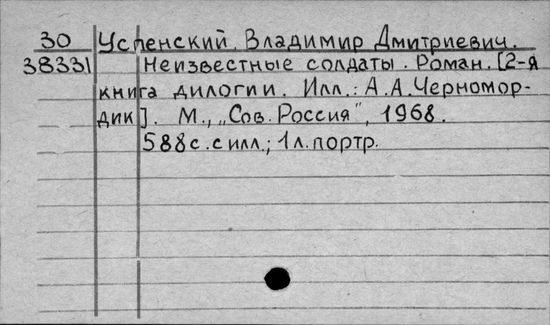 30 Успенский, Владимир Дмитриевич.
38331 Неизвестные солдаты. Роман. [2-я
книга дилогии. Илл.: А.А.Черномор-
дик]. М., „Сов. Россия", 1968.
588с. с илл.; 1л. портр.